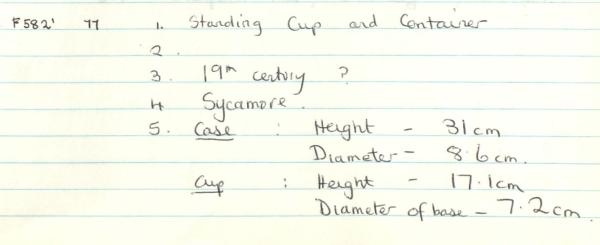 F582' 77 1. Standing Cup and Container
2.
3. 19th century ?
4 Sycamore.
5. Case : Height - 31cm
Diameter - 8.6cm.
Cup : Height - 17.1cm
Diameter of base - 7.2cm.